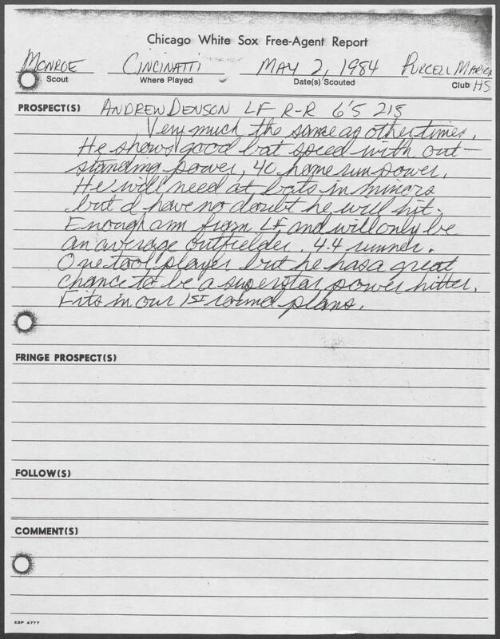 Chicago White Sox Free-Agent Report
MONROE CINCINATTI MAY 2, 1984 PURCELL MARIAN
Scout Where Played Date(s) Scouted Club HS
PROSPECT(S) ANDREW DENSON LF R-R 6'5 215
Very much the same as other times.
He shows good bat speed with out-
standing power, 40 home run power.
He will need at bats in minors
but I have no doubt he will hit.
Enough arm from LF and will only be
an average outfielder. 4.4 runner.
One tool player but he has a great
chance to be a superstar power hitter.
Fits in our 1ST round plans.
FRINGE PROSPECT(S)
FOLLOW(S)
COMMENT(S)